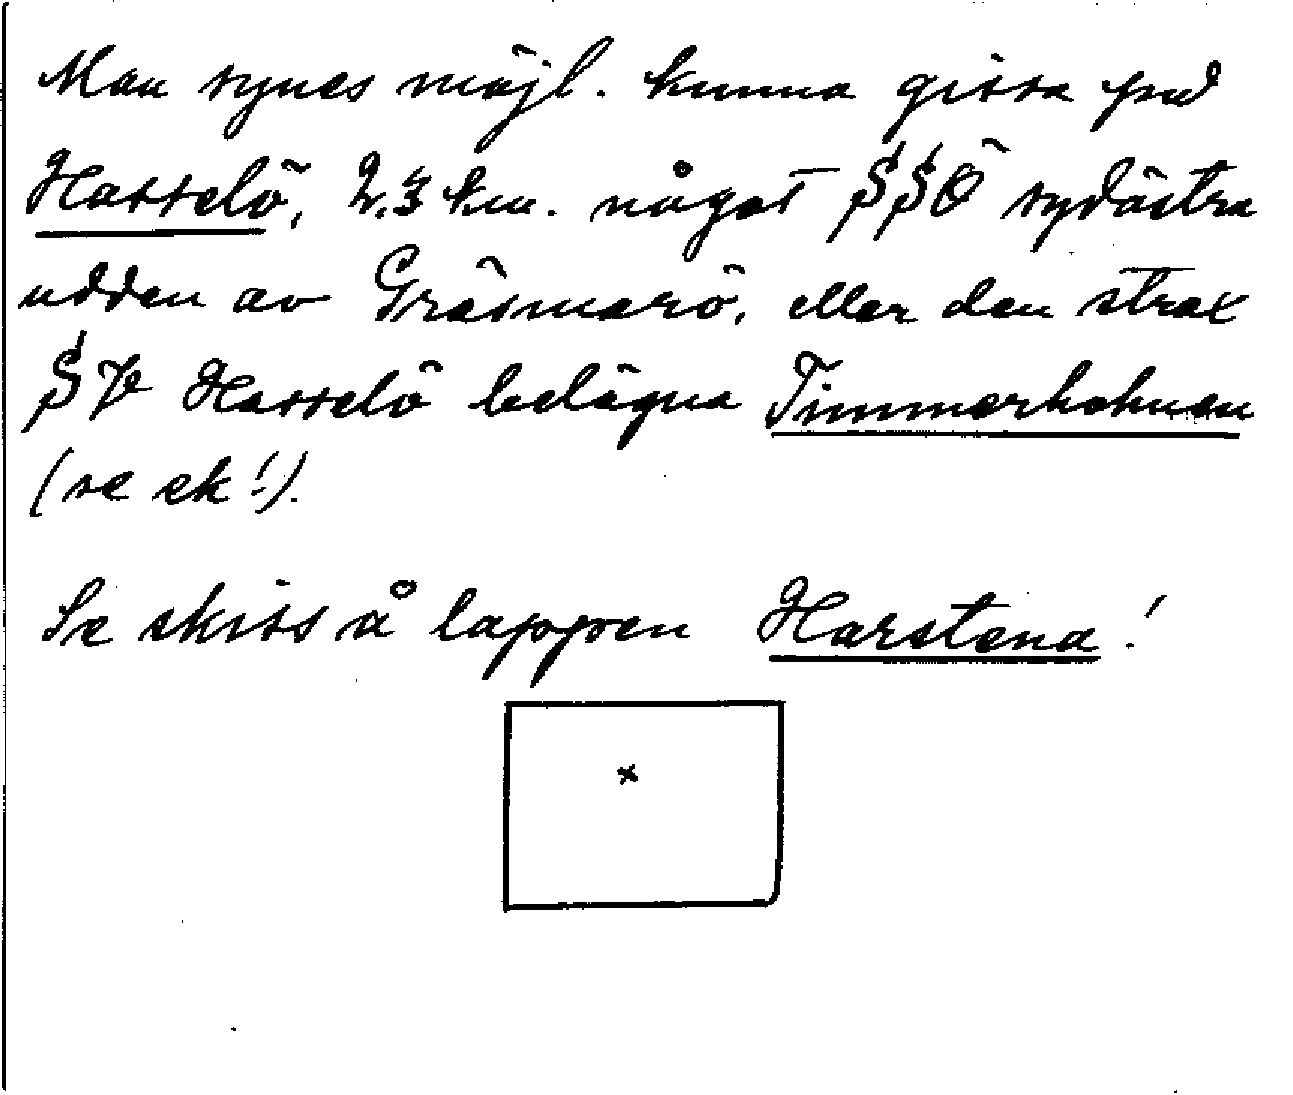 Man synes möjl. kunna gissa på
Hasselö, 2.3 km. något SSÖ sydöstra
udden av Gräsmarö, eller den strax
SV Hasselö belägna Timmerholmen
(se ek!).
Se skiss å lappen Harstena!
x